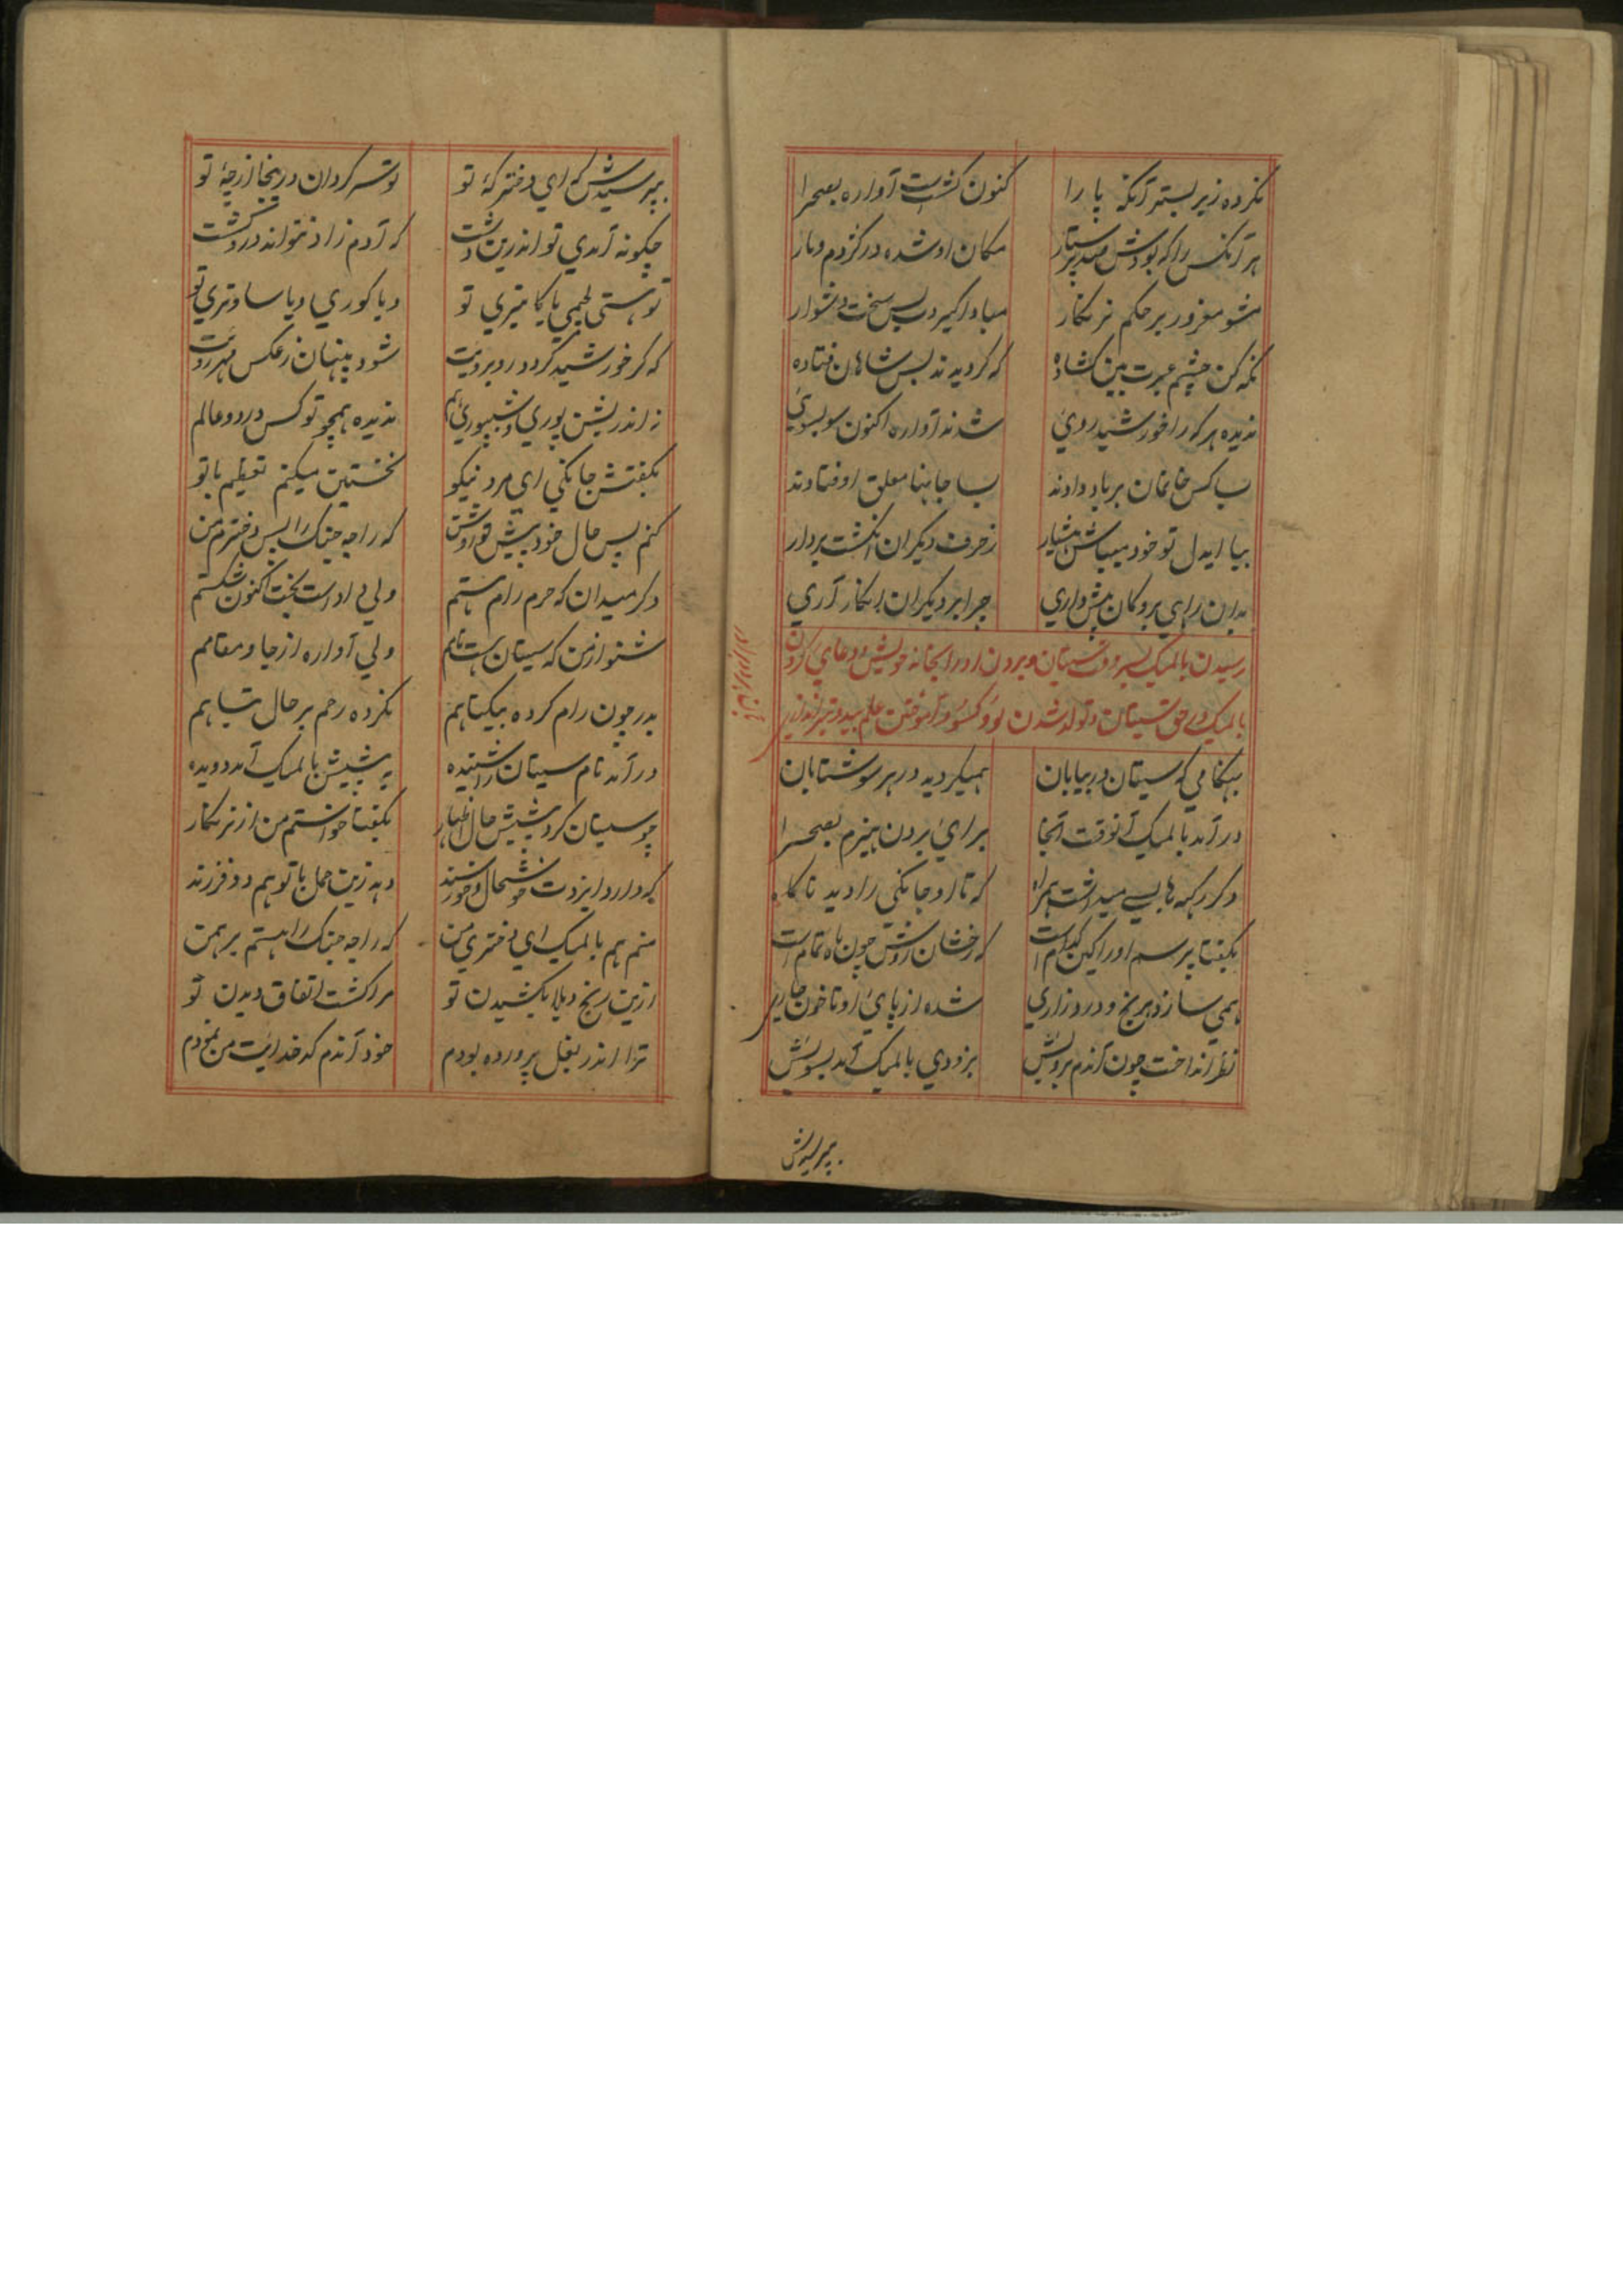 نکرده زیر بستر آنکه پا را کنون گشت است آواره بصحرا
هر آنکس را که بودش صد پرستار مکان او شده در کژدم و مار
مشو مغرور بر حکم نرنکار مبادا گیردت بس سخت و دشوار
نگه کن چشم عبرت بین گشاده که گردیدند بس شاهان فتاده
ندیده هر که را خورشید روئ شدند آواره اکنون سو بسوئ
بسا کس خانمان بر باد دادند بسا جاها معلق اوفتادند
بیا ایدل تو خود میباش هشیار ز حرف دیگران انگشت بردار
بدان راهی برو کان پیش داری چرا بر دیگران انکار آری
رسیدن بالمیک بسر وقت سیتان و بردن او را بخانه خویش و دعای کردن
بالمیک در حق سیتان و تولد شدن لو و کسو و آموختن علم بید و تیر اندازی
بهنگامی که سیتان در بیابان همیگردید در هر سو شتابان
در آمد بالمیک آنوقت آنجا برائ بردن هیزم بصحرا
دگر رکهه هابسی میداشت همراه که تا او جانکی را دید ناگاه
بگفتا پرسم او را کین کدام است که رخشان رویش چون ماه تمام است
همی سازد بر نج و درد زاری شده از پائ او تا خون جاری
نظر انداخت چون آندم برویش بزودی بالمیک آمد بسویش
بپرسیدش
بپرسیدش که ای دختر که تو تو سرگردان در ینجا از چه تو
چگونه آمدی تو اندرین دشت که آدم زاد نتواند در و گشت
تو هستی لچمی یا کایتری تو و یا گوری و یا ساوتری تو
که گر خورشید گردد روبرویت شود پنهان ز عکس مهر رویت
نه اندر بشن پوری و شیبپوری هم ندیده همچو تو کس در دو عالم
بگفتش جانکی ای مرد نیکو نخستین میکنم تعظیم با تو
کنم پس حال خود پیش تو روشن که راجه جنک را بس دخترم من
دگر میدان که حرم رام هستم ولی بی او است بخت اکنون شکستم
شنو از من که سیتان هست نامم ولی آواره از جا و مقامم
بدر چون رام کرده بیگناهم نکرده رحم بر حال تباهم
در آمد نام سیتان را شنیده به پیشش بالمیک آمد دویده
چو سیتان کرد پیشش حال اظهار بگفتا خواستم من از نرنکار
که دارد ایزدت خوشحال و خورسند دهد زین حمل با تو هم دو فرزند
منم هم بالمیک ای دختری من که راجه جنک را هستم برهمن
ازین رنج و بلا بکشیدن تو مرا گشت اتفاق دیدن تو
ترا اندر بغل پرورده بودم خود آندم کدخدایت من نمودم